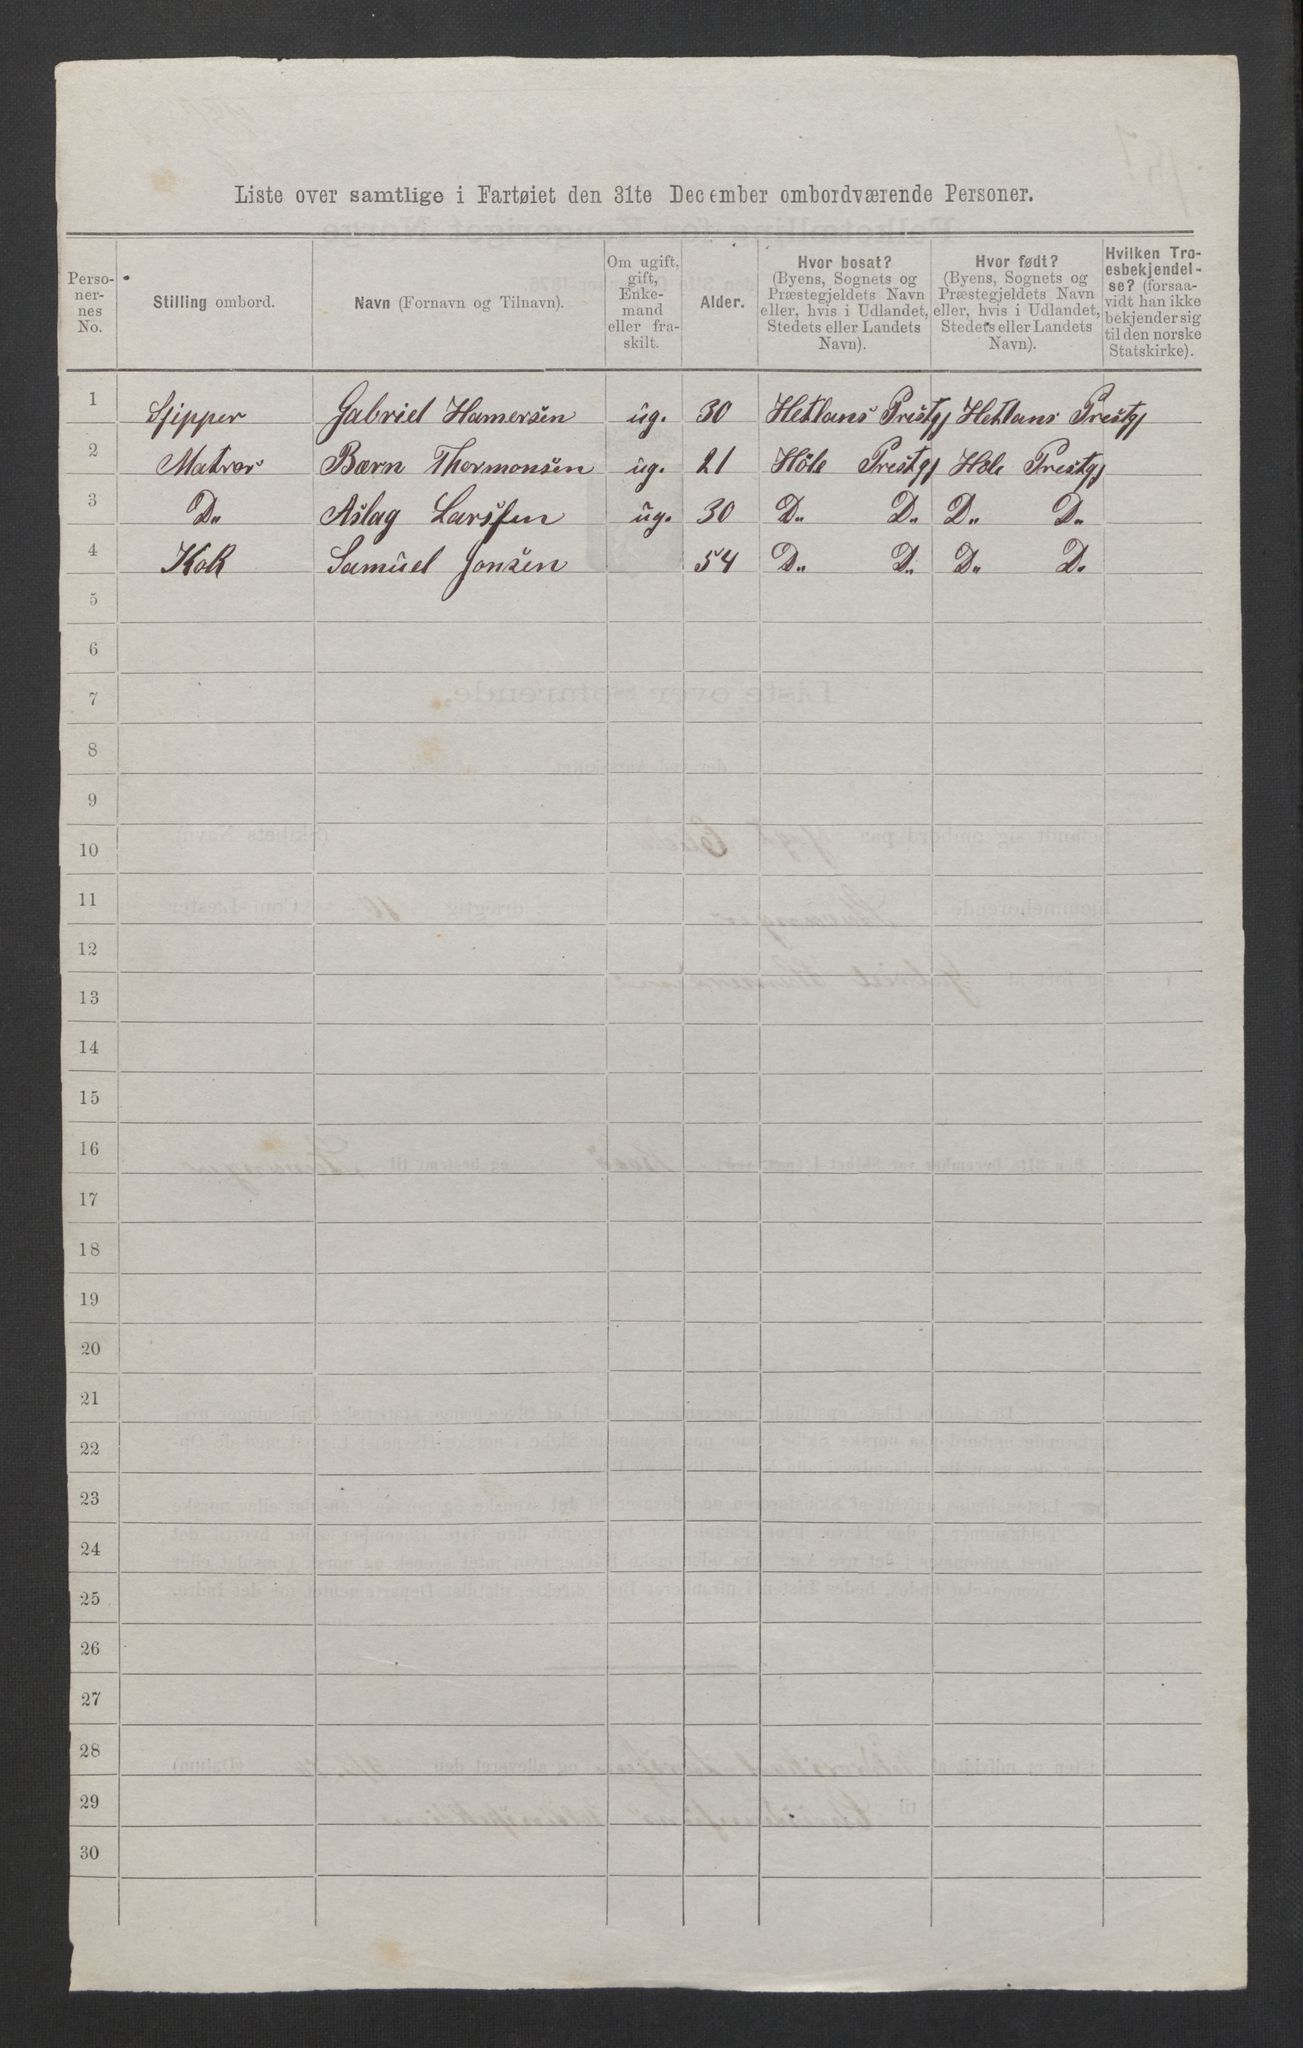 Liste over samtlige i Fartøiet den 31te December ombordværende Personer.
Perso-
ner-
nes
No.
Stilling ombord.
Navn (Fornavn og Tilnavn).
Om ugift,
gift,
Enke-
mand
eller fra-
skilt.
Alder.
Hvor bosat?
(Byens, Sognets og
Præstegjeldets Navn
eller, hvis i Udlandet,
Stedets eller Landets
Navn).
Hvor født?
(Byens, Sognets og
Præstegjeldets Navn
eller, hvis i Udlandet,
Stedets eller Landets
Navn).
Hvilken Tro-
esbekjendel-
se? (forsaa-
vidt han ikke
bekjender sig
til den norske
Statskirke).
1 Sjipper Gabriel Hamersen ug. 30 Hetlans Prestgj Hetlans Prestgj
2 Matros Bærn Thormonsen ug. 21 Höle Prestgj Höle Prestgj
3 D" Aslag Larssen ug. 30 D" D" D" D"
4 Kok Samuel Jonsen 54 D" D" D" D"
5
6
7
8
9
10
11
12
13
14
15
16
17
18
19
20
21
22
23
24
25
26
27
28
29
30